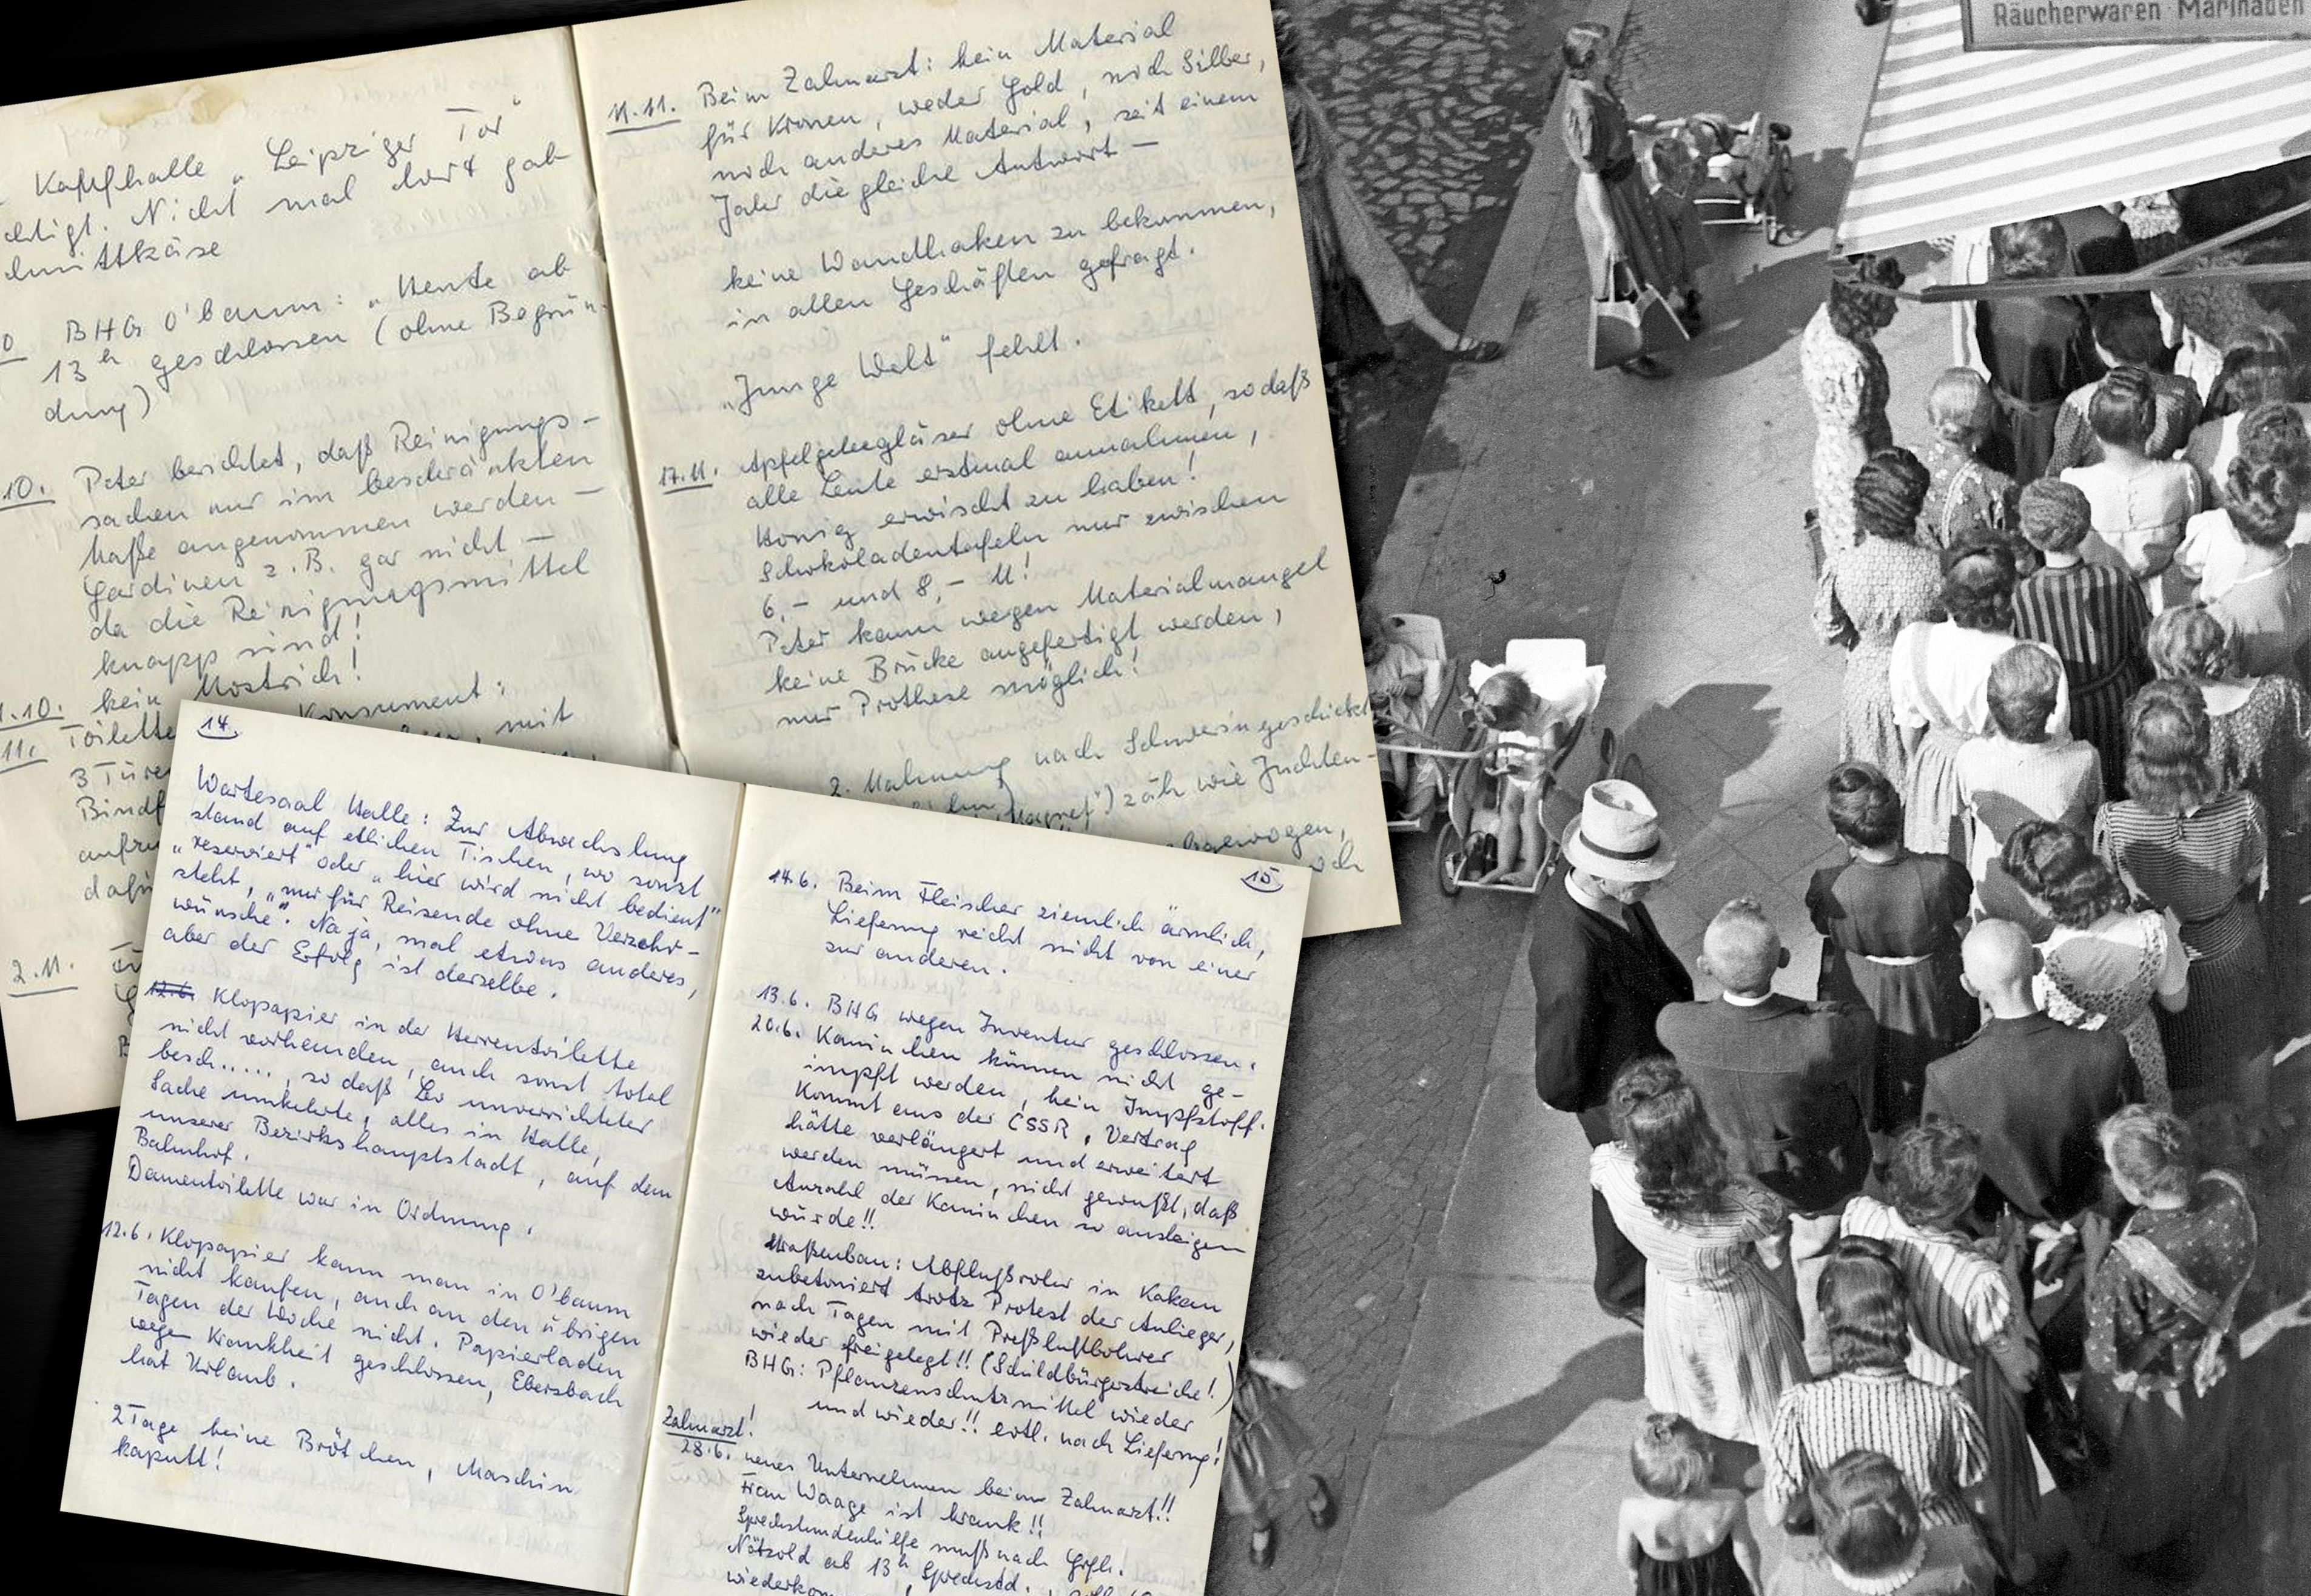 Kaufhalle „Leipziger Tor"
chtigt. Nicht mal dort gab
chnittkäse
BHG O'baum: „Heute ab
13h geschlossen (ohne Begrün-
dung)
10. Peter berichtet, daß Reinigungs-
sachen nur im beschränkten
Maße angenommen werden –
Gardinen z.B. gar nicht –
da die Reinigungsmittel
knapp sind!
1.10. kein Mostrich!
11. Toilette Konsument:
3 Türen mit
Bindf
aufzu
dafür
2.11.
11.11. Beim Zahnarzt: kein Material
für Kronen, weder Gold, noch Silber,
noch anderes Material, seit einem
Jahr die gleiche Antwort –
keine Wandhaken zu bekommen,
in allen Geschäften gefragt.
„Junge Welt" fehlt.
17.11. Apfelgeleegläser ohne Etikett, sodaß
alle Leute erstmal annahmen,
Honig erwischt zu haben!
Schokoladentafeln nur zwischen
6,– und 8,– M!
Peter kann wegen Materialmangel
keine Brücke angefertigt werden,
nur Prothese möglich!
2. Mahnung nach Schwerin geschickt
zäh wie Juchten-
abgewogen,
och
14.
Wartesaal Halle: Zur Abwechslung
stand auf etlichen Tischen, wo sonst
„reserviert" oder „hier wird nicht bedient"
steht, „nur für Reisende ohne Verzehr-
wünsche". Na ja, mal etwas anderes,
aber der Erfolg ist derselbe.
12.6. Klopapier in der Herrentoilette
nicht vorhanden, auch sonst total
besch....., so daß Leo unverrichteter
Sache umkehrte, alles in Halle,
unserer Bezirkshauptstadt, auf dem
Bahnhof.
Damentoilette war in Ordnung.
12.6. Klopapier kann man in O'baum
nicht kaufen, auch an den übrigen
Tagen der Woche nicht. Papierladen
wegen Krankheit geschlossen, Ebersbach
hat Urlaub.
2 Tage keine Brötchen, Maschin
kaputt!
15
14.6. Beim Fleischer ziemlich ärmlich,
Lieferung reicht nicht von einer
zur anderen.
13.6. BHG wegen Inventur geschlossen.
20.6. Kaninchen können nicht ge-
impft werden, kein Impfstoff.
Kommt aus der ČSSR, Vertrag
hätte verlängert und erweitert
werden müssen, nicht gewußt, daß
Anzahl der Kaninchen so ansteigen
würde!!
Straßenbau: Abflußrohr in Kakau
zubetoniert trotz Protest der Anlieger,
nach Tagen mit Preßluftbohrer
wieder freigelegt!! (Schildbürgerstreiche!)
BHG: Pflanzenschutzmittel wieder
und wieder!! evtl. nach Lieferung!
Zahnarzt!
28.6. neues Unternehmen beim Zahnarzt!!
Frau Waage ist krank!!
Sprechstundenhilfe muß nach Gräfh.!
Nötzold ab 13h Sprechstd.
wiederkom
Räucherwaren Marinaden